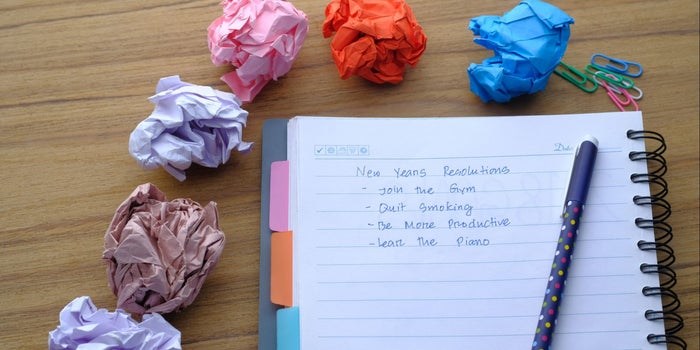 Date:
New Years Resolutions
- Join the Gym
- Quit Smoking
- Be More Productive
- Learn the Piano